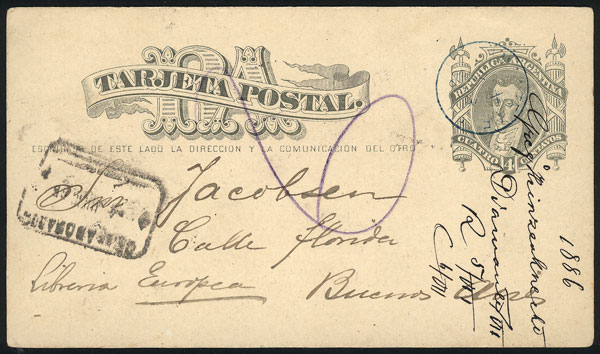 RA
TARJETA POSTAL.
REPUBLICA ARGENTINA
CUATRO 4 CENTAVOS
ESCRIBASE DE ESTE LADO LA DIRECCION Y LA COMUNICACION DEL OTRO
Jacobsen
Calle Florida
Libreria Europea Buenos Aires
1886
Diamante